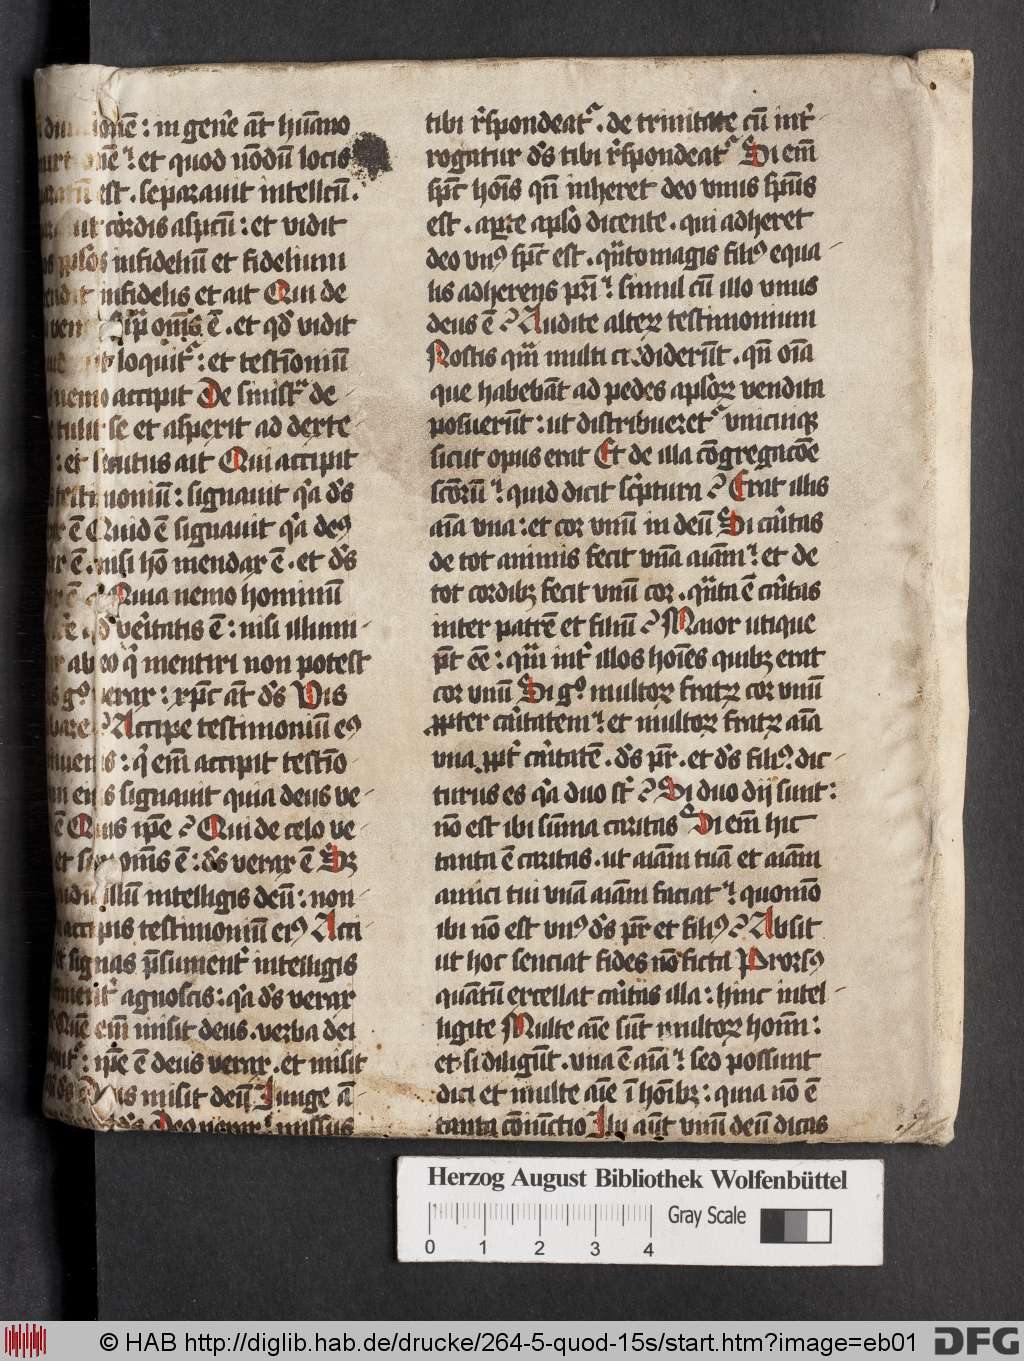 ionē: in genē̓ āt hūano
et quod nōdū locis
est. separauit intellcū.
cordis aspcū: et vidit
infideliū et fidelium
infidelis et ait Qui de
om̄s ē. et qd̓ vidit
loquit᷑: et testīoniū
nemo accipit De sinist᷑ de-
tulit se et asperit ad dexte-
: et secutus ait Qui accipit
testimoniū: signauit qa d̄s
ē Quid ē signauit qa deꝰ
ē. nisi hō mendax ē. et d̄s
Quia nemo hominū
veritatis ē: nisi illumi-
ab eo q̓ mentiri non potest
gͦ verax: xp̄c āt d̄s Vis
Accipe testimoniū eꝰ
: q̓ em̄ accipit testīo
signauit quia deus ve-
Quis ip̄e? Qui de celo ve-
om̄s ē: d̄s verax ē Sꝫ
illū intelligis deū: non-
testimoniū eiꝰ Acci-
signas p̄sument᷑ intelligis
agnoscis: qa d̄s verax
Quē em̄ misit deus. verba dei
: ip̄e ē deus verax. et misit
misit deū Iunge ā-
Deo verax missus
tibi r̄spondeat᷑. de trinitate cū int̓-
rogatur d̄s tibi r̄spondeat᷑ Si em̄
sp̄c hoīs qn̄ inheret deo vnus sp̄us
est. aꝑte apłō dicente. qui adheret
deo vnꝰ sp̄c est. qn̄to magis filiꝰ equa-
lis adherens pr̄i: simul cū illo vnus
deus ē? Audite alteꝝ testimonium
Nostis qm̄ multi crediderūt. qn̄ oīa
que habebāt ad pedes apłoꝝ vendita
posuerūt: ut distribueret᷑ vnicuiqꝫ
sicut opus erat Et de illa cōgregacōe
scōꝝ: quid dicit sc̓ptura? Erat illis
aīa vna: et cor vnū in deū Si cāritas
de tot animis fecit vnā aīam: et de
tot cordibꝫ fecit vnū cor. qn̄ta ē cāritas
inter patrē et filiū? Maior utique
pt̄ eē: qm̄ int̓ illos hoīes quibꝫ erat
cor vnū Si gͦ multoꝝ fratꝝ cor vnū
ꝓpter cāritatem: et multoꝝ fratꝝ aīa
vna ꝓpt̓ cāritatē. d̄s pr̄. et d̄s filiꝰ. dic-
turus es qa duo st̄? Si duo dij sunt:
nō est ibi sūma caritas Si em̄ hic
tanta ē caritas. ut aīam tuā et aīam
amici tui vnā aīam faciat: quomō
ibi nō est vnꝰ d̄s pr̄ et filiꝰ? Absit
ut hoc senciat fides nō ficta Prorsꝰ
quātū excellat cāritas illa: hinc intel-
ligite Multe aīe sūt multoꝝ hoīm:
et si diligūt. vna ē aīa: sed possunt
dici et multe aīe ī hoībꝫ: quia nō ē
tanta cōiūctio Illū aūt vnū deū dicas
Herzog August Bibliothek Wolfenbüttel
Gray Scale
0 1 2 3 4
© HAB http://diglib.hab.de/drucke/264-5-quod-15s/start.htm?image=eb01
DFG